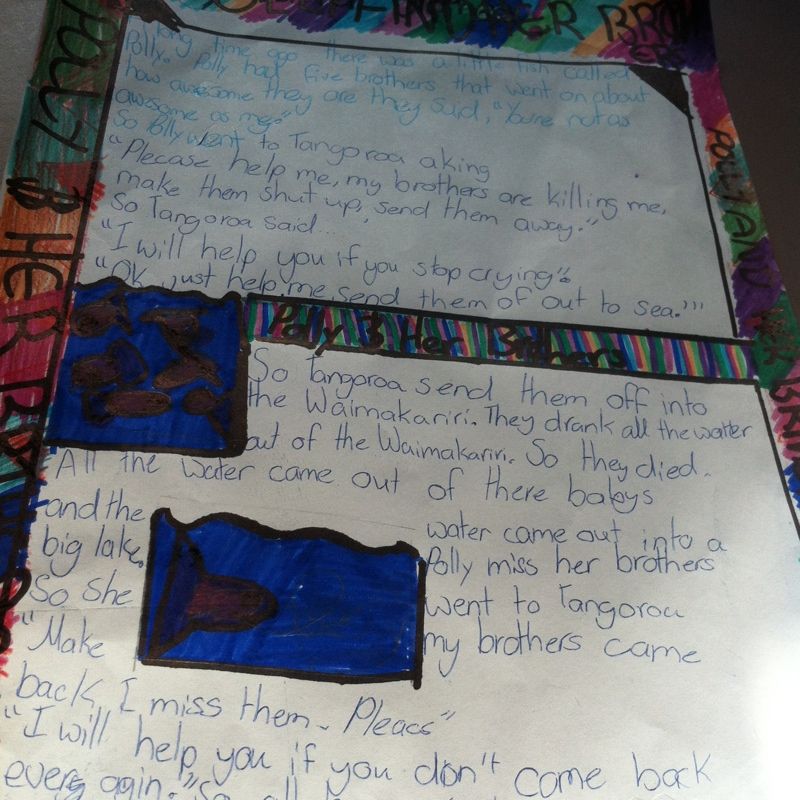 POLLY & HER BROTHERS
long time ago there was a little fish called
Polly. Polly had five brothers that went on about
how awesome they are they said, "You're not as
awesome as me."
So Polly went to Tangoroa aking
"Plecase help me, my brothers are killing me,
make them shut up, send them away."
So Tangoroa said...
"I will help you if you stop crying"
"OK just help me send them of out to sea."
Polly & Her Brothers
So Tangoroa send them off into
the Waimakariri. They drank all the water
out of the Waimakariri. So they died.
All the water came out of there babys
and the water came out into a
big lake. Polly miss her brothers
So she went to Tangoroa
"Make my brothers came
back, I miss them. Pleacs"
"I will help you if you don't come back
ever agin." So all
POLLY AND HER